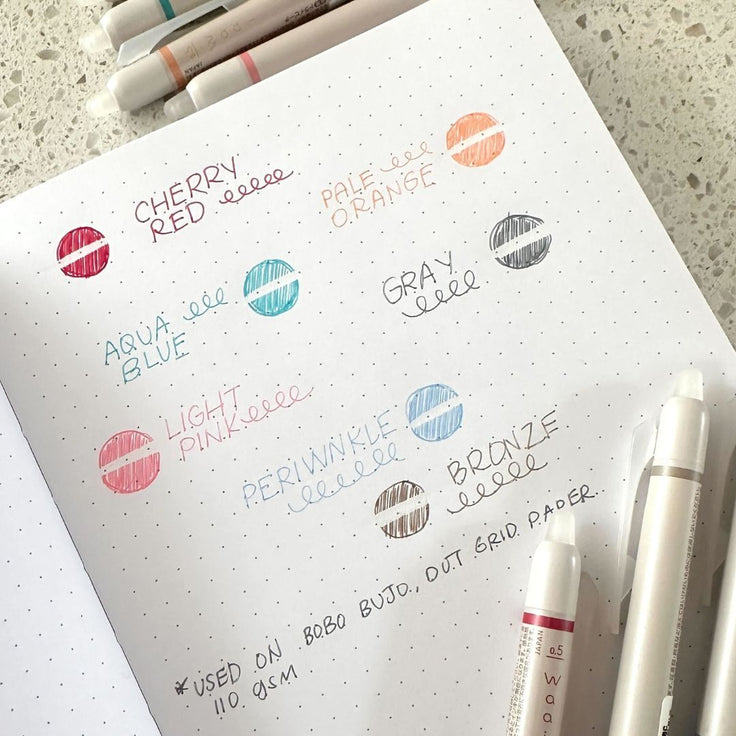 CHERRY
RED
PALE
ORANGE
GRAY
AQUA
BLUE
LIGHT
PINK
PERIWNKLE
BRONZE
*USED ON BOBO BUJO., DOT GRID PAPER
110 gsm
JAPAN
0.5
JAPAN